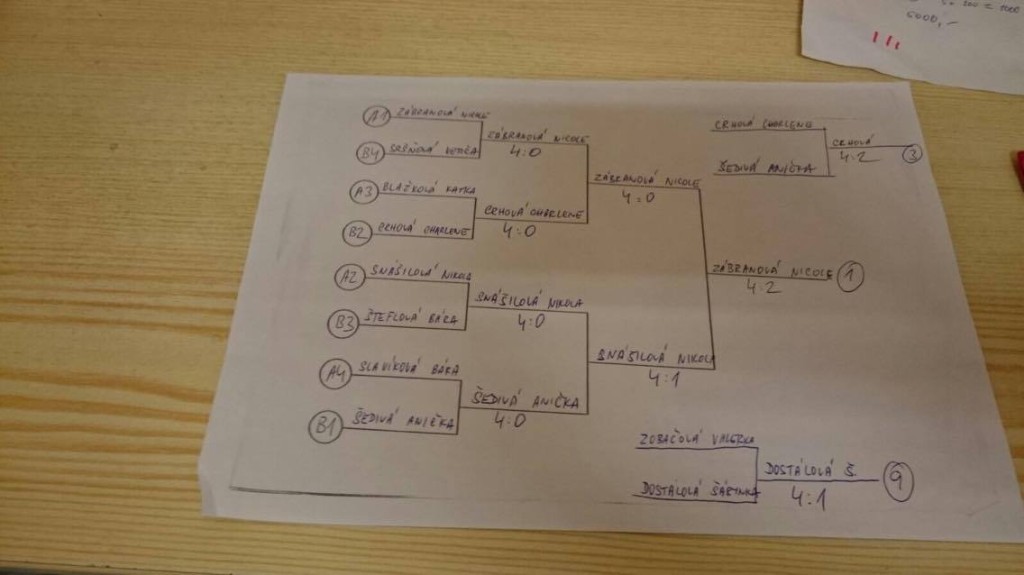 50 200 = 1000
5000,-
A1 ZÁBRANOVÁ NICOLE
B4
ZÁBRANOVÁ NICOLE
4:0
A3 BLAŽKOVÁ KATKA
B2 CRHOVÁ CHARLENE
CRHOVÁ CHARLENE
4:0
ZÁBRANOVÁ NICOLE
4:0
A2 SNÁŠILOVÁ NIKOLA
B3 ŠTEFLOVÁ BÁRA
SNÁŠILOVÁ NIKOLA
4:0
A4 SLAVÍKOVÁ BÁRA
B1 ŠEDIVÁ ANIČKA
ŠEDIVÁ ANIČKA
4:0
SNÁŠILOVÁ NIKOLA
4:1
ZÁBRANOVÁ NICOLE 1
4:2
CRHOVÁ CHARLENE
ŠEDIVÁ ANIČKA
CRHOVÁ 3
4:2
ZOBAČOVÁ VALERKA
DOSTÁLOVÁ ŠÁRINKA
DOSTÁLOVÁ Š 9
4:1